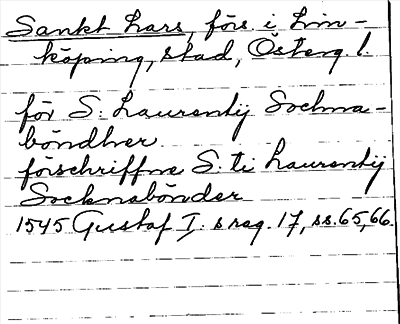 Sankt Lars, förs. i Lin-
köping, stad, Österg. l.
för S: Laurentij Sochna-
böndher.
förschriffne S:ti Laurentij
Socknabönder
1545 Gustaf I:s reg. 17, ss. 65, 66.